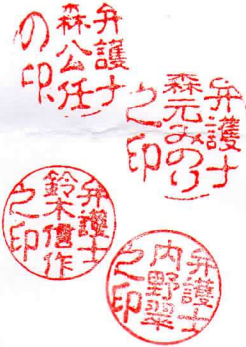 弁護士
森公任
の印
弁護士
森元みのり
之印
弁護士
鈴木信作
之印
弁護士
内野翠
之印